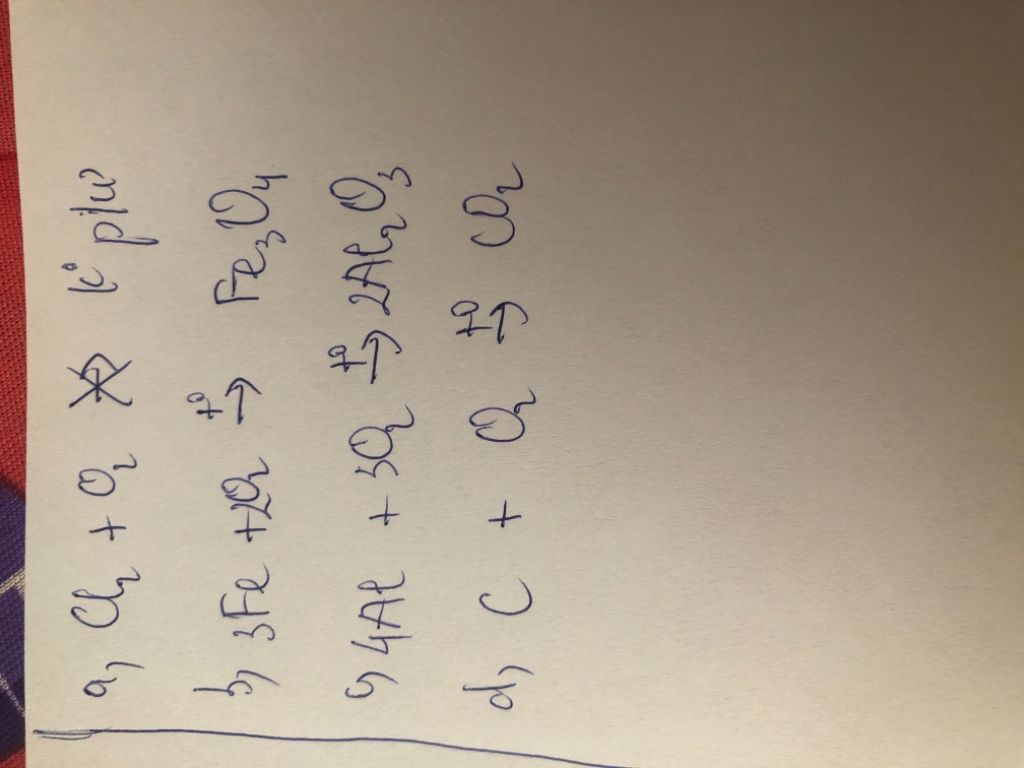 a, Cl₂ + O₂ ↛ k° pứ
b, 3Fe + 2O₂ t°→ Fe₃O₄
c, 4Al + 3O₂ t°→ 2Al₂O₃
d, C + O₂ t°→ CO₂